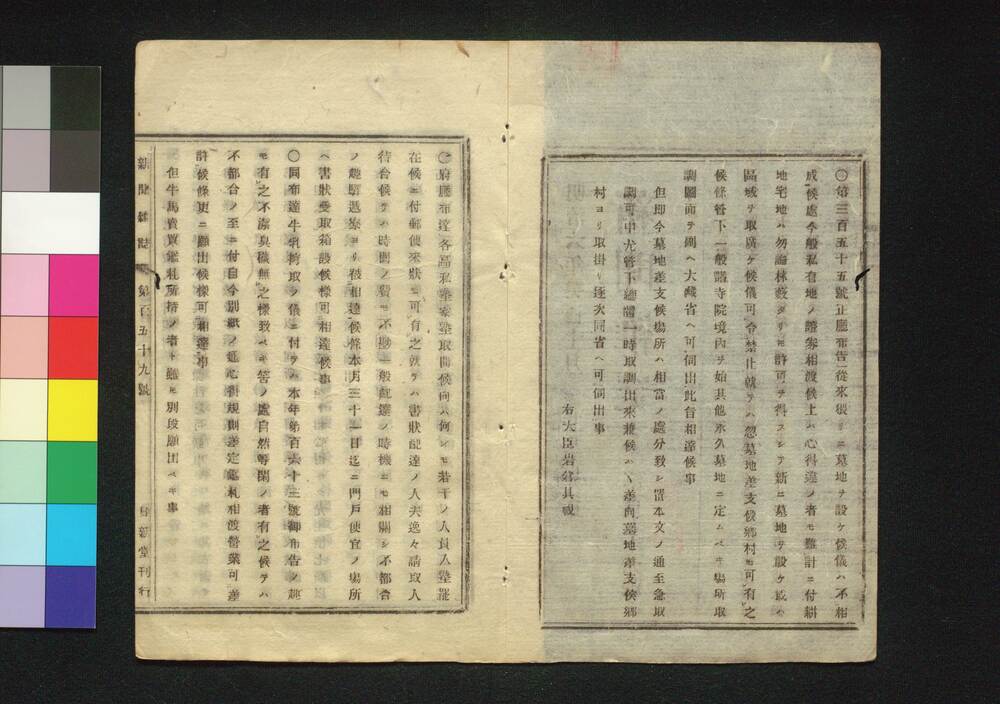 〇第三百五十五號正廳布告ニ從來猥リニ墓地ヲ設ケ候儀ハ不相
成候處今般私有地ノ證券相渡候上ハ心得違ノ者モ難計ニ付耕
地宅地ハ勿論林藪タリモ許可ヲ得スシテ新ニ墓地ヲ設ケ或ハ
區域ヲ取廣ケ候儀可令禁止就テハ忽墓地差支候鄕村モ可有之
候條管下一般諸寺院境內ヲ始其他永久墓地ニ定ムベキ場所取
調圖面ヲ副ヘ大藏省ヘ可伺出此旨相達候事
但即今墓地差支候場所ハ相當ノ處分致シ置本文ノ通至急取
調可申尤管下總體一時取調出來兼候ハヽ差向墓地差支候鄕
村ヨリ取掛リ逐次同省ヘ可伺出事
右大臣岩倉具視
〇府廳布達各區私塾家塾取開候向ハ何レモ若干ノ人員入塾罷
在候ニ付郵便來狀モ可有之就テハ書狀配達ノ人夫逸々請取人
待合候テハ時間ノ費モ不尠一般配達ノ時機ニモ相關シ不都合
ノ趣驛遞寮ヨリ被相達候條本月三十一日迄ニ門戶便宜ノ場所
ヘ書狀受取箱設候樣可相達候事
〇同布達牛乳搾取ノ儀ニ付テハ本年第百六十三號御布告ノ趣
モ有之不潔臭穢無之樣致ベキ筈ノ處自然等閑ノ者有之候テハ
不都合ノ至ニ付自今別紙ノ通心得規則差定鑑札相渡營業可差
許候條更ニ願出候樣可相達事
但牛馬賣買鑑札所持ノ者ト雖モ別段願出ベキ事
新聞雜誌 第百五十九號 日新堂刊行